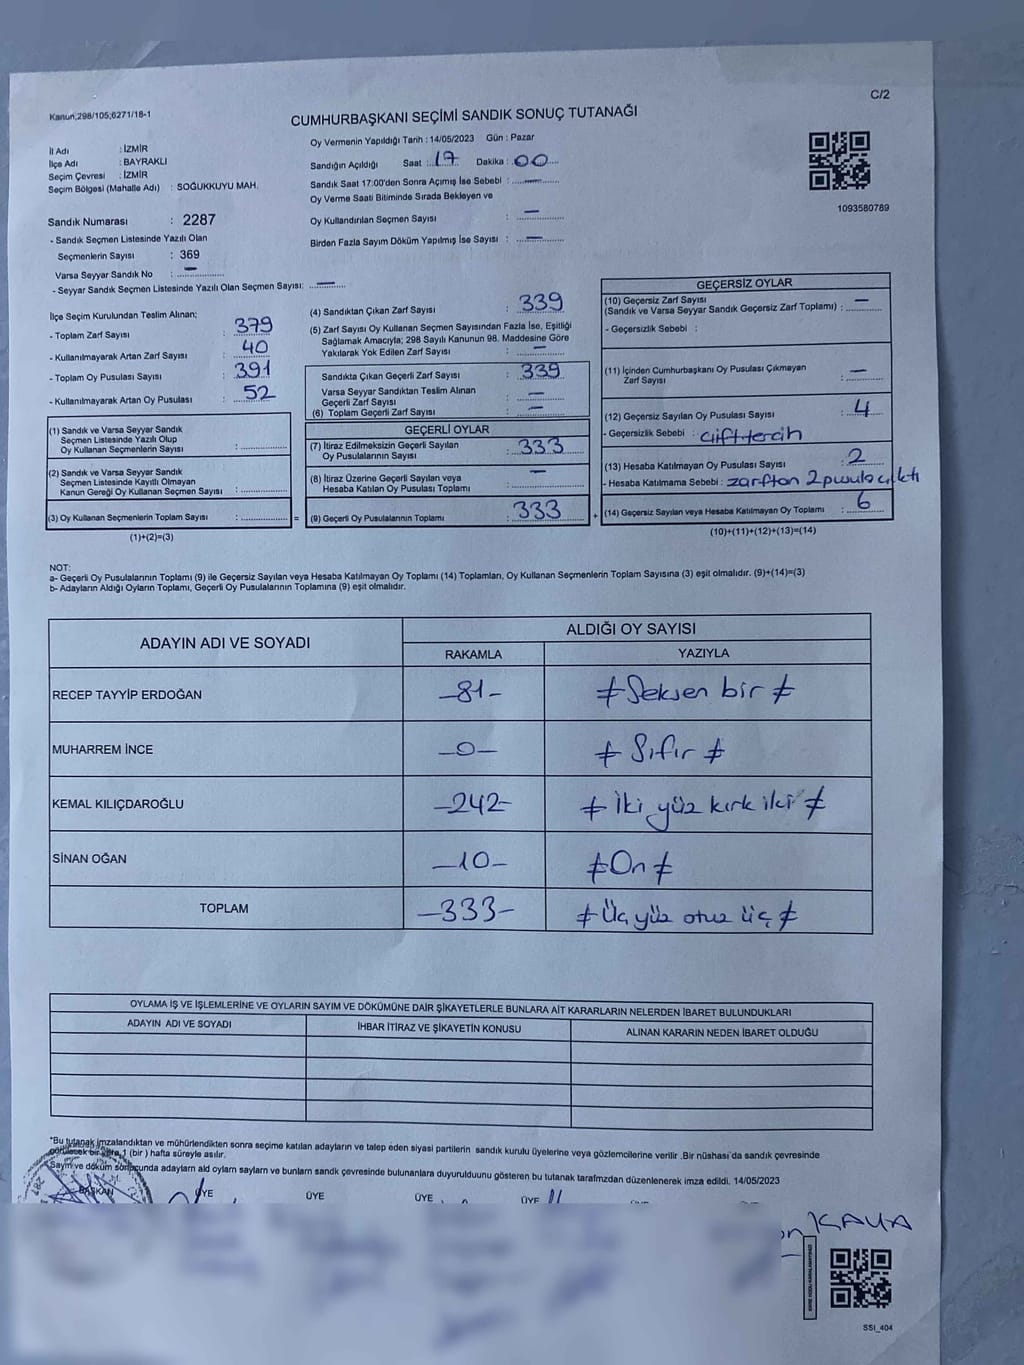 C/2
Kanun,298/105;6271/18-1
CUMHURBAŞKANI SEÇİMİ SANDIK SONUÇ TUTANAĞI
İl Adı : İZMİR
İlçe Adı : BAYRAKLI
Seçim Çevresi : İZMİR
Seçim Bölgesi (Mahalle Adı) : SOĞUKKUYU MAH.
Sandık Numarası : 2287
- Sandık Seçmen Listesinde Yazılı Olan
Seçmenlerin Sayısı : 369
Varsa Seyyar Sandık No : —
- Seyyar Sandık Seçmen Listesinde Yazılı Olan Seçmen Sayısı: —
Oy Vermenin Yapıldığı Tarih : 14/05/2023 Gün : Pazar
Sandığın Açıldığı Saat : 17 Dakika : 00
Sandık Saat 17:00'den Sonra Açımış İse Sebebi : —
Oy Verme Saati Bitiminde Sırada Bekleyen ve
Oy Kullandırılan Seçmen Sayısı : —
Birden Fazla Sayım Döküm Yapılmış İse Sayısı : —
1093580789
İlçe Seçim Kurulundan Teslim Alınan;
- Toplam Zarf Sayısı : 379
- Kullanılmayarak Artan Zarf Sayısı : 40
- Toplam Oy Pusulası Sayısı : 391
- Kullanılmayarak Artan Oy Pusulası : 52
(1) Sandık ve Varsa Seyyar Sandık
Seçmen Listesinde Yazılı Olup
Oy Kullanan Seçmenlerin Sayısı :
(2) Sandık ve Varsa Seyyar Sandık
Seçmen Listesinde Kayıtlı Olmayan
Kanun Gereği Oy Kullanan Seçmen Sayısı :
(3) Oy Kullanan Seçmenlerin Toplam Sayısı : =
(1)+(2)=(3)
(4) Sandıktan Çıkan Zarf Sayısı : 339
(5) Zarf Sayısı Oy Kullanan Seçmen Sayısından Fazla İse, Eşitliği
Sağlamak Amacıyla; 298 Sayılı Kanunun 98. Maddesine Göre
Yakılarak Yok Edilen Zarf Sayısı : —
Sandıkta Çıkan Geçerli Zarf Sayısı : 339
Varsa Seyyar Sandıktan Teslim Alınan
Geçerli Zarf Sayısı : —
(6) Toplam Geçerli Zarf Sayısı : —
GEÇERLİ OYLAR
(7) İtiraz Edilmeksizin Geçerli Sayılan
Oy Pusulalarının Sayısı : 333
(8) İtiraz Üzerine Geçerli Sayılan veya
Hesaba Katılan Oy Pusulası Toplamı : —
(9) Geçerli Oy Pusulalarının Toplamı : 333 +
GEÇERSİZ OYLAR
(10) Geçersiz Zarf Sayısı
(Sandık ve Varsa Seyyar Sandık Geçersiz Zarf Toplamı) : —
- Geçersizlik Sebebi :
(11) İçinden Cumhurbaşkanı Oy Pusulası Çıkmayan
Zarf Sayısı : —
(12) Geçersiz Sayılan Oy Pusulası Sayısı : 4
- Geçersizlik Sebebi : Çift tercih
(13) Hesaba Katılmayan Oy Pusulası Sayısı : 2
- Hesaba Katılmama Sebebi : zarftan 2 pusula çıktı
(14) Geçersiz Sayılan veya Hesaba Katılmayan Oy Toplamı : 6
(10)+(11)+(12)+(13)=(14)
NOT:
a- Geçerli Oy Pusulalarının Toplamı (9) ile Geçersiz Sayılan veya Hesaba Katılmayan Oy Toplamı (14) Toplamları, Oy Kullanan Seçmenlerin Toplam Sayısına (3) eşit olmalıdır. (9)+(14)=(3)
b- Adayların Aldığı Oyların Toplamı, Geçerli Oy Pusulalarının Toplamına (9) eşit olmalıdır.
ADAYIN ADI VE SOYADI ALDIĞI OY SAYISI
RAKAMLA YAZIYLA
RECEP TAYYİP ERDOĞAN —81— ≠ Seksen bir ≠
MUHARREM İNCE —0— ≠ Sıfır ≠
KEMAL KILIÇDAROĞLU —242— ≠ İki yüz kırk iki ≠
SİNAN OĞAN —10— ≠ On ≠
TOPLAM —333— ≠ Üç yüz otuz üç ≠
OYLAMA İŞ VE İŞLEMLERİNE VE OYLARIN SAYIM VE DÖKÜMÜNE DAİR ŞİKAYETLERLE BUNLARA AİT KARARLARIN NELERDEN İBARET BULUNDUKLARI
ADAYIN ADI VE SOYADI İHBAR İTİRAZ VE ŞİKAYETİN KONUSU ALINAN KARARIN NEDEN İBARET OLDUĞU
*Bu tutanak imzalandıktan ve mühürlendikten sonra seçime katılan adayların ve talep eden siyasi partilerin sandık kurulu üyelerine veya gözlemcilerine verilir .Bir nüshası da sandık çevresinde
görülecek bir yere 1 (bir ) hafta süreyle asılır.
Sayım ve döküm sonucunda adayların aldı oyların sayıları ve bunların sandık çevresinde bulunanlara duyurulduunu gösteren bu tutanak tarafmzdan düzenlenerek imza edildi. 14/05/2023
BAŞKAN ÜYE ÜYE ÜYE ÜYE
KAYA
SSI_404